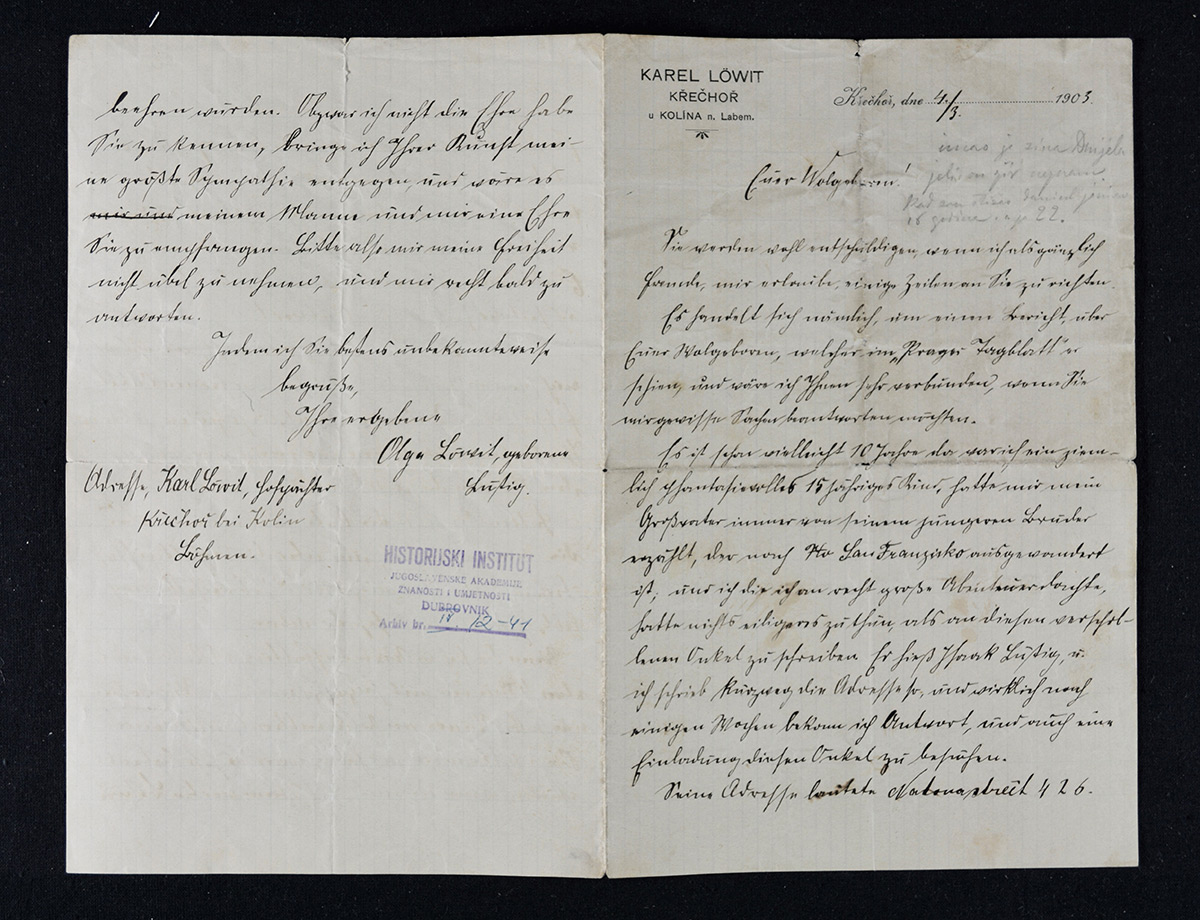 KAREL LÖWIT
KŘEČHOŘ
u KOLÍNA n. Labem.
Křečhoř, dne 4./3. 1903.
Euer Wolgeboren!
Sie werden wohl entschuldigen, wenn ich als gänzlich
fremde, mir erlaube, einige Zeilen an Sie zu richten.
Es handelt sich nämlich, um einen Bericht, über
Euer Wolgeboren, welcher im „Prager Tagblatt" er
schien, und wäre ich Ihnen sehr verbunden, wenn Sie
mir gewisse Sachen beantworten möchten.
Es ist schon vielleicht 10 Jahre da war ich ein ziem-
lich phantasievolles 15 jähriges Kind, hatte mir mein
Großvater immer von seinem jüngeren Bruder
erzählt, der nach San Franzisko ausgewandert
ist, und ich die ich an recht große Abenteuer dachte,
hatte nichts eiligeres zu thun, als an diesen verschol-
lenen Onkel zu schreiben. Er hieß Isaak Lustig, u.
ich schrieb kurzweg die Adresse so, und wirklich nach
einigen Wochen bekam ich Antwort, und auch eine
Einladung diesen Onkel zu besuchen.
Seine Adresse lautete 426.
je žina
jelu en žiž
18 godina 22.
beehren würden. Obzwar ich nicht die Ehre habe
Sie zu kennen, bringe ich Ihrer Kunst mei-
ne größte Sympathie entgegen, und wäre es
mir und meinem Manne und mir eine Ehre
Sie zu empfangen. Bitte also mir meine Freiheit
nicht übel zu nehmen, und mir recht bald zu
antworten.
Indem ich Sie bestens unbekannterweise
begrüße,
Ihre ergebene
Olga Löwit, geborene
Lustig.
Adresse, Karl Löwit, Hofpächter
Křečhoř bei Kolin
Böhmen.
HISTORIJSKI INSTITUT
JUGOSLAVENSKE AKADEMIJE
ZNANOSTI I UMJETNOSTI
DUBROVNIK
Arhiv br. 12-41